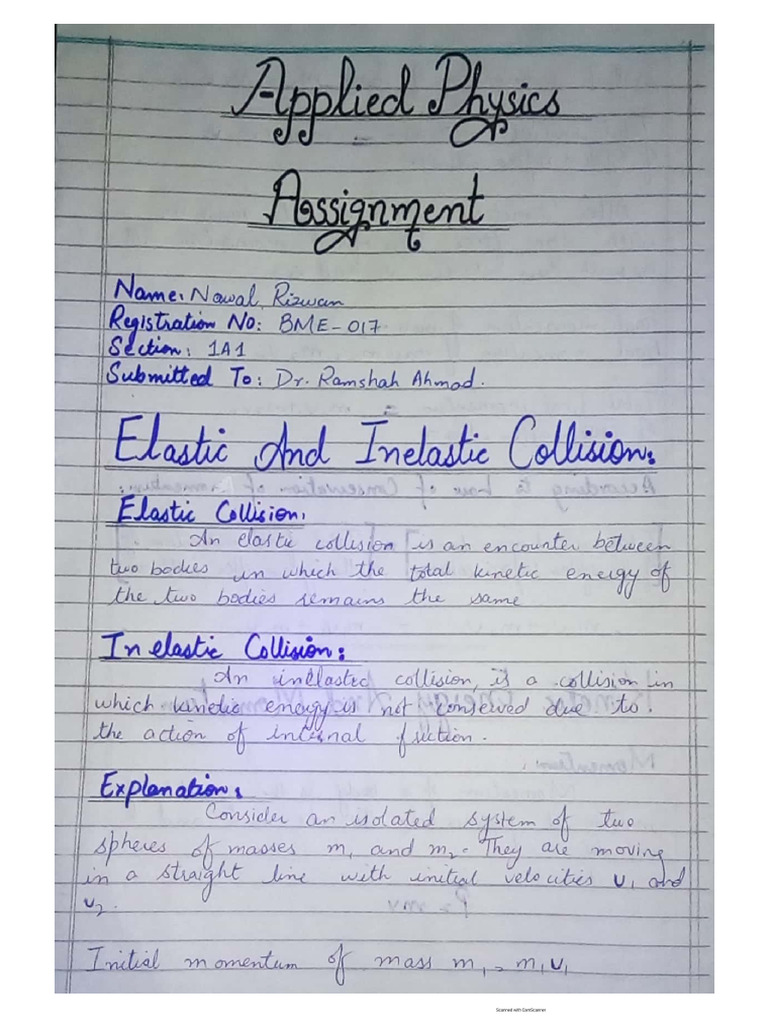 Applied Physics
Assignment
Name: Nawal Rizwan
Registration No: BME-017
Section: 1A1
Submitted To: Dr. Ramshah Ahmad.
Elastic And Inelastic Collision:
Elastic Collision:
An elastic collision is an encounter between
two bodies in which the total kinetic energy of
the two bodies remains the same
In elastic Collision:
An inellasted collision, is a collision in
which kinetic energy is not conserved due to
the action of internal friction.
Explanation:
Consider an isolated system of two
spheres of masses m₁ and m₂. They are moving
in a straight line with initial velocities U₁ and
U₂.
Initial momentum of mass m₁ = m₁U₁
Scanned with CamScanner